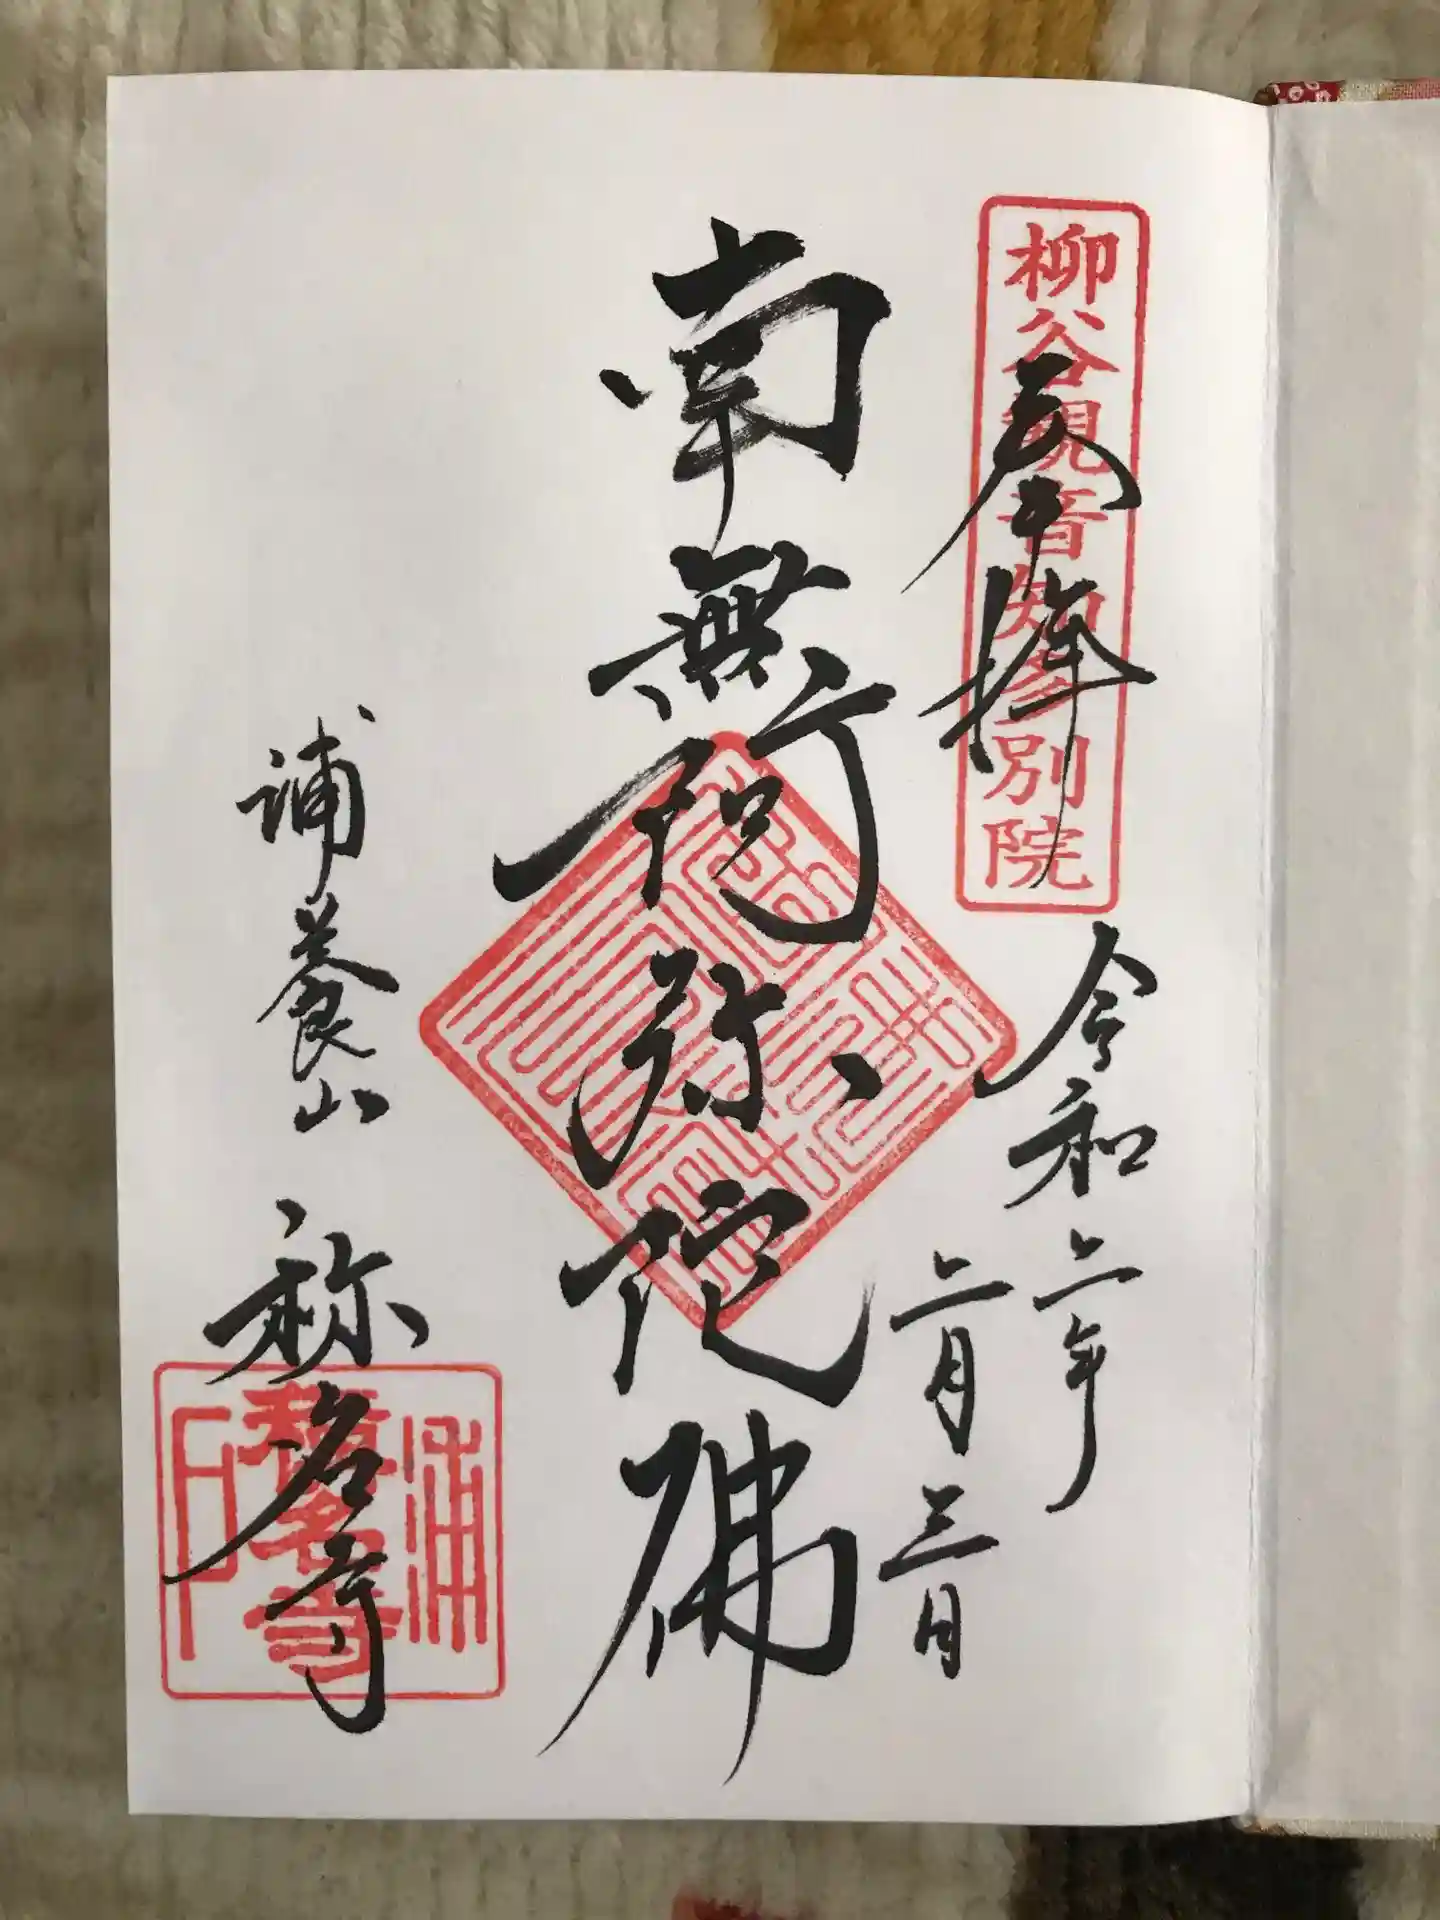 柳谷観音知多別院
奉拝
令和二年
二月三日
南無阿弥陀佛
養山
称名寺
稱名寺